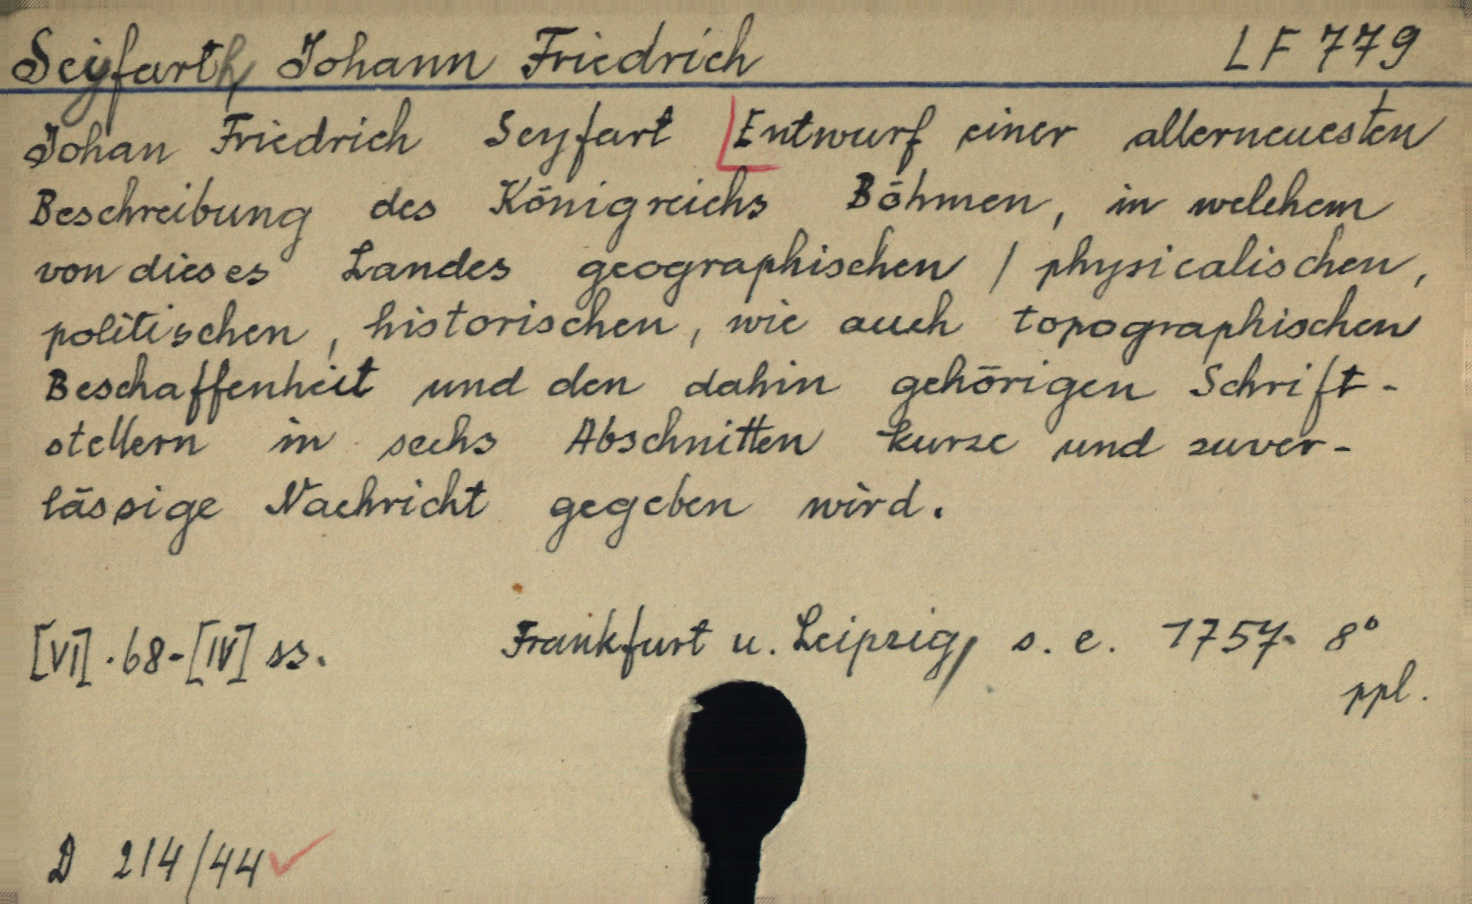 Seyfarth Johann Friedrich LF 779
Johan Friedrich Seyfart Entwurf einer allerneuesten
Beschreibung des Königreichs Böhmen, in welchem
von dieses Landes geographischen / physicalischen,
politischen, historischen, wie auch topographischen
Beschaffenheit und den dahin gehörigen Schrift-
stellern in sechs Abschnitten kurze und zuver-
lässige Nachricht gegeben wird.
[VI]. 68-[IV] ss. Frankfurt u. Leipzig, s. e. 1757. 8°
ppl.
D 214/44